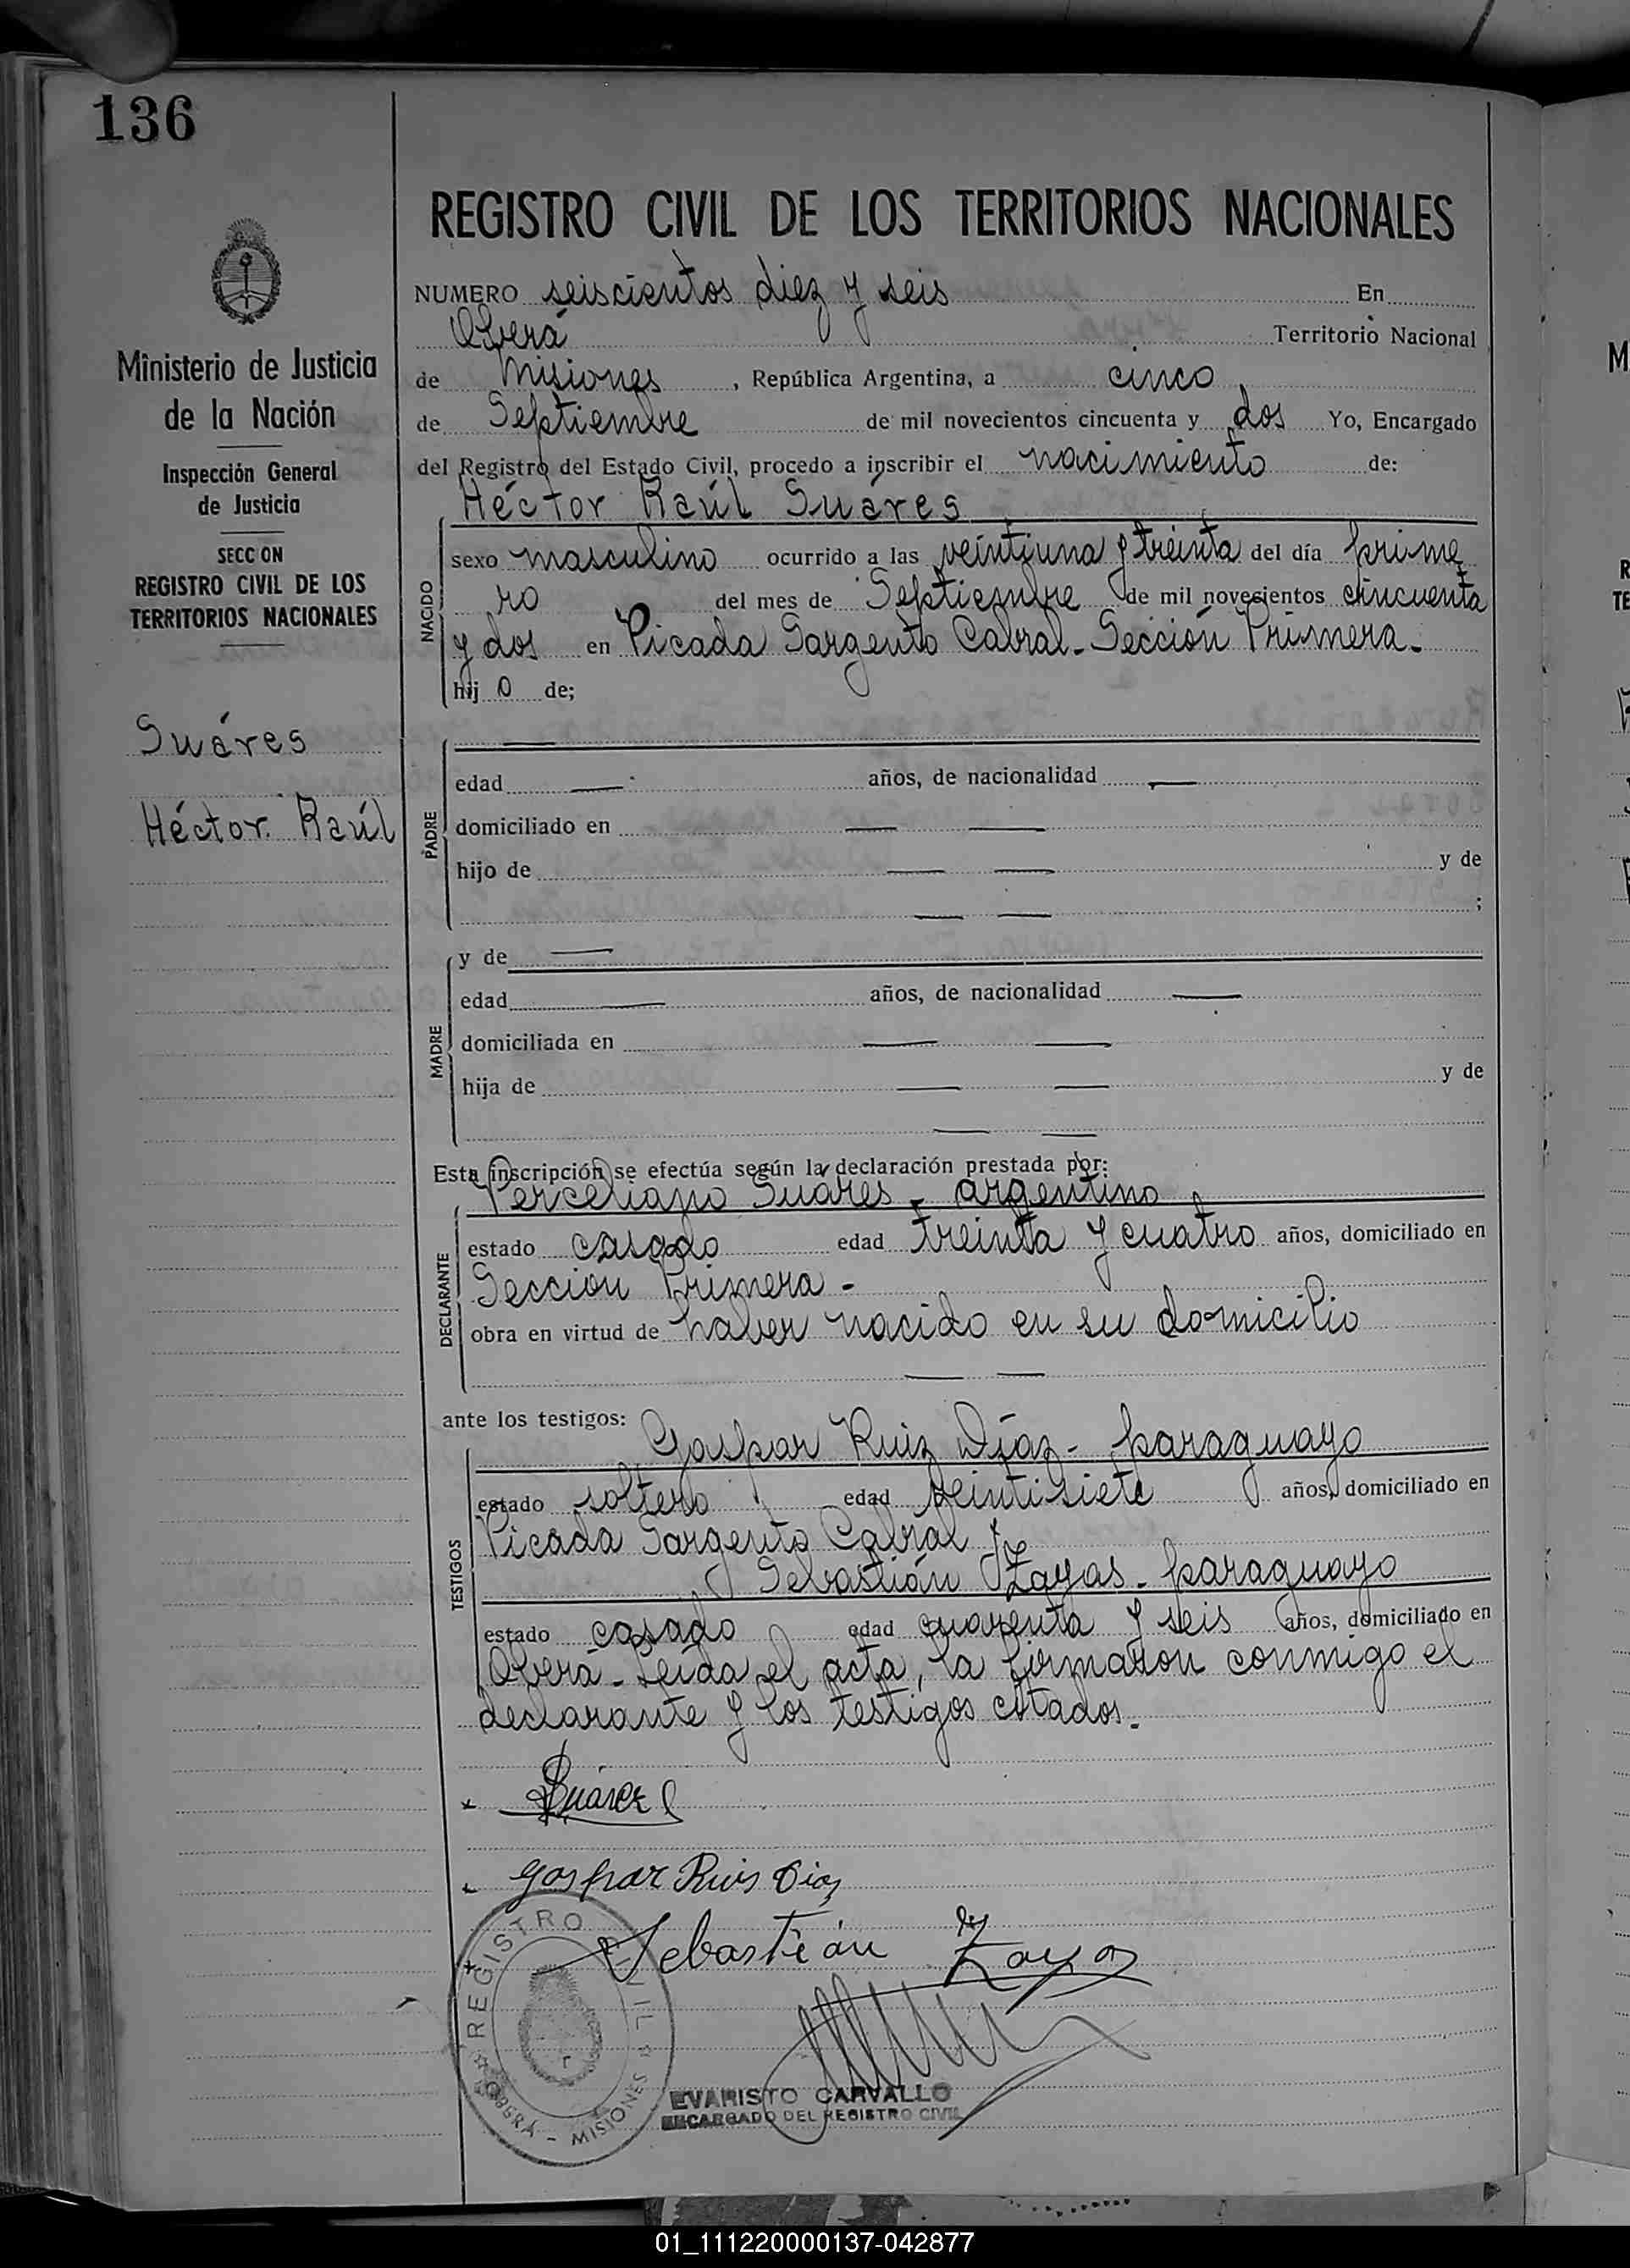 136
REGISTRO CIVIL DE LOS TERRITORIOS NACIONALES
NUMERO seiscientos diez y seis En
Oberá Territorio Nacional
de Misiones, República Argentina, a cinco
de Septiembre de mil novecientos cincuenta y dos Yo, Encargado
del Registro del Estado Civil, procedo a inscribir el nacimiento de:
Héctor Raúl Suáres
NACIDO
sexo masculino ocurrido a las veintiuna y treinta del día prime
ro del mes de Septiembre de mil novecientos cincuenta
y dos en Picada Sargento Cabral - Sección Primera -
hijo de;
Ministerio de Justicia
de la Nación
Inspección General
de Justicia
SECCION
REGISTRO CIVIL DE LOS
TERRITORIOS NACIONALES
Suáres
Héctor Raúl
PADRE
edad — años, de nacionalidad —
domiciliado en — —
hijo de — — y de
— — ;
MADRE
y de —
edad — años, de nacionalidad —
domiciliada en — —
hija de — — y de
— —
Esta inscripción se efectúa según la declaración prestada por:
DECLARANTE
Perceliano Suáres - argentino
estado casado edad treinta y cuatro años, domiciliado en
Sección Primera -
obra en virtud de haber nacido en su domicilio
— —
ante los testigos:
TESTIGOS
Gaspar Ruiz Díaz - paraguayo
estado soltero edad veintisiete años, domiciliado en
Picada Sargento Cabral y
Sebastián Zayas - paraguayo
estado casado edad cuarenta y seis años, domiciliado en
Oberá - Leída el acta, la firmaron conmigo el
declarante y los testigos citados.-
Suárez
Gaspar Ruis Diaz
Sebastián Zayas
REGISTRO CIVIL
OBERÁ - MISIONES
EVARISTO CARVALLO
ENCARGADO DEL REGISTRO CIVIL
01_111220000137-042877